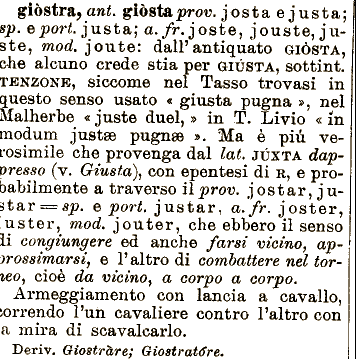 giòstra, ant. giòsta prov. josta e justa;
sp. e port. justa; a. fr. joste, jouste, ju-
ste, mod. joute: dall'antiquato GIÒSTA,
che alcuno crede stia per GIÚSTA, sottint.
TENZONE, siccome nel Tasso trovasi in
questo senso usato « giusta pugna », nel
Malherbe «juste duel, » in T. Livio « in
modum justæ pugnæ ». Ma è piú ve-
rosimile che provenga dal lat. JÚXTA dap-
presso (v. Giusta), con epentesi di R, e pro-
babilmente a traverso il prov. jostar, ju-
star = sp. e port. justar, a. fr. joster,
juster, mod. jouter, che ebbero il senso
di congiungere ed anche farsi vicino, ap-
prossimarsi, e l'altro di combattere nel tor-
neo, cioè da vicino, a corpo a corpo.
Armeggiamento con lancia a cavallo,
correndo l'un cavaliere contro l'altro con
la mira di scavalcarlo.
Deriv. Giostràre; Giostratóre.